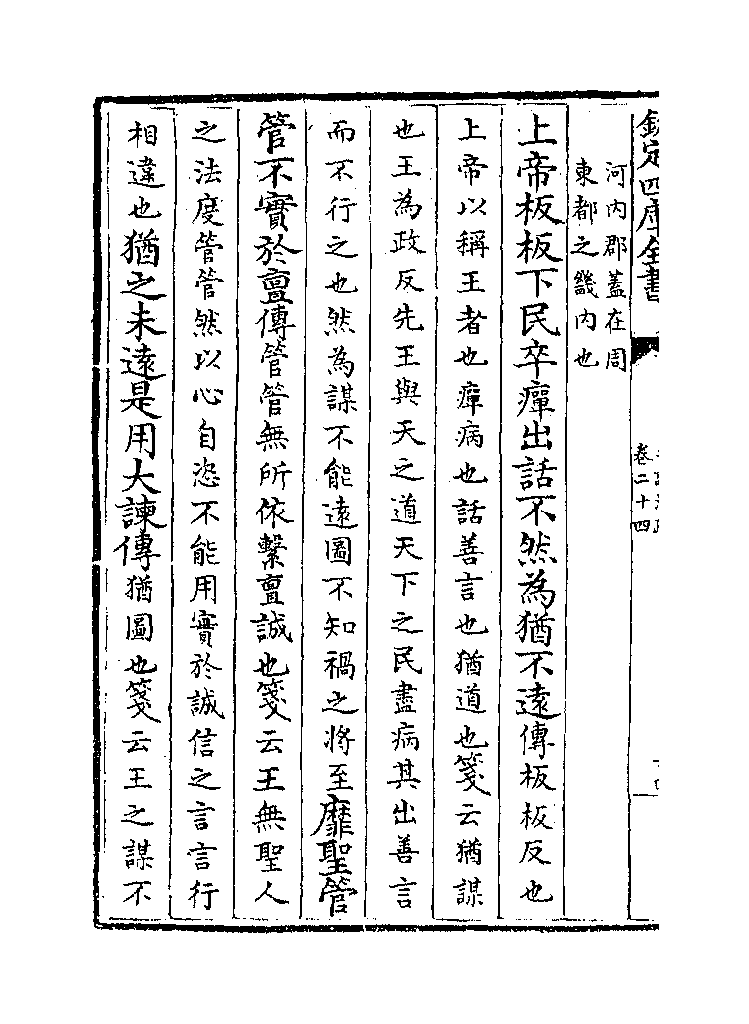 欽定四庫全書
卷二十四
河内郡蓋在周
東都之畿内也
上帝板板下民卒癉出話不然為猶不遠傳板板反也
上帝以稱王者也癉病也話善言也猶道也箋云猶謀
也王為政反先王與天之道天下之民盡病其出善言
而不行之也然為謀不能遠圖不知禍之將至靡聖管
管不實於亶傳管管無所依繫亶誠也箋云王無聖人
之法度管管然以心自恣不能用實於誠信之言言行
相違也猶之未遠是用大諫傳猶圖也箋云王之謀不